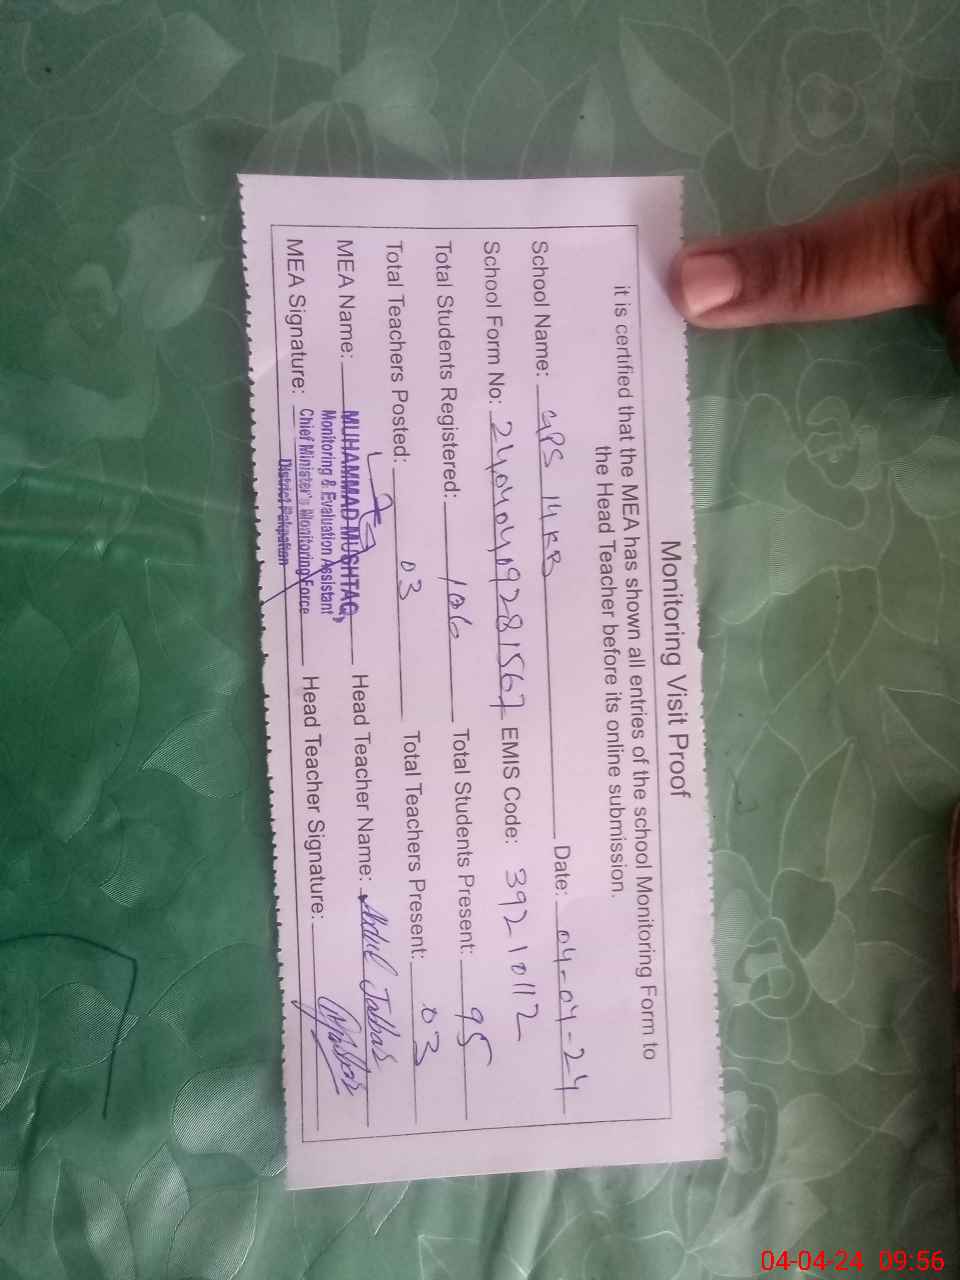 Monitoring Visit Proof
it is certified that the MEA has shown all entries of the school Monitoring Form to
the Head Teacher before its online submission.
School Name: GPS 14 KB Date: 04-04-24
School Form No: 24040409281567 EMIS Code: 39210112
Total Students Registered: 106 Total Students Present: 95
Total Teachers Posted: 03 Total Teachers Present: 03
MEA Name: MUHAMMAD MUSHTAQ, Head Teacher Name: Abdul Jabbar
Monitoring & Evaluation Assistant
MEA Signature: Chief Minister's Monitoring Force Head Teacher Signature:
District Pakpattan
04-04-24 09:56